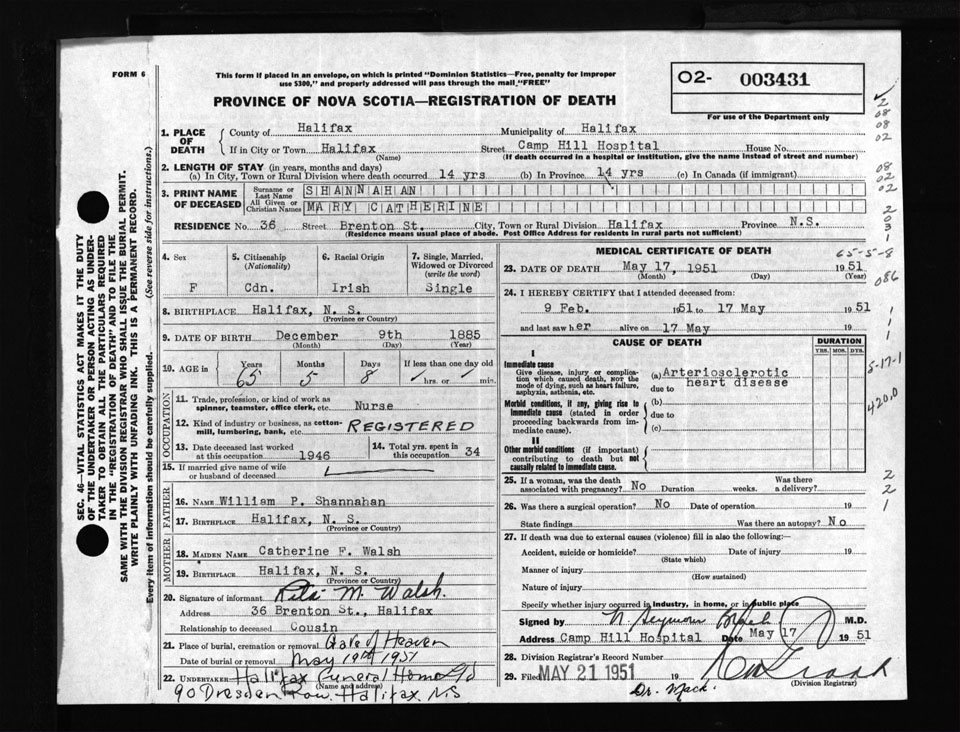 FORM 6
This form if placed in an envelope, on which is printed "Dominion Statistics—Free, penalty for improper
use $300," and properly addressed will pass through the mail "FREE"
PROVINCE OF NOVA SCOTIA—REGISTRATION OF DEATH
O2- 003431
For use of the Department only
1. PLACE OF DEATH County of Halifax Municipality of Halifax
If in City or Town Halifax Street Camp Hill Hospital House No.
(Name) (If death occurred in a hospital or institution, give the name instead of street and number)
2. LENGTH OF STAY (in years, months and days)
(a) In City, Town or Rural Division where death occurred 14 yrs (b) In Province 14 yrs (c) In Canada (if immigrant)
3. PRINT NAME OF DECEASED Surname or Last Name SHANNAHAN
All Given or Christian Names MARY CATHERINE
RESIDENCE No. 36 Street Brenton St. City, Town or Rural Division Halifax Province N.S.
(Residence means usual place of abode. Post Office Address for residents in rural parts not sufficient)
4. Sex F
5. Citizenship (Nationality) Cdn.
6. Racial Origin Irish
7. Single, Married, Widowed or Divorced (write the word) Single
8. BIRTHPLACE Halifax, N. S.
(Province or Country)
9. DATE OF BIRTH December 9th 1885
(Month) (Day) (Year)
10. AGE in Years 65 Months 5 Days 8 If less than one day old
hrs. or min.
OCCUPATION
11. Trade, profession, or kind of work as
spinner, teamster, office clerk, etc. Nurse
12. Kind of industry or business, as cotton-
mill, lumbering, bank, etc. REGISTERED
13. Date deceased last worked
at this occupation 1946
14. Total yrs. spent in
this occupation 34
15. If married give name of wife
or husband of deceased
FATHER
16. NAME William P. Shannahan
17. BIRTHPLACE Halifax, N. S.
(Province or Country)
MOTHER
18. MAIDEN NAME Catherine F. Walsh
19. BIRTHPLACE Halifax, N. S.
(Province or Country)
20. Signature of informant Rita M. Walsh.
Address 36 Brenton St., Halifax
Relationship to deceased Cousin
21. Place of burial, cremation or removal Gate of Heaven
Date of burial or removal May 19th 1951
22. UNDERTAKER Halifax Funeral Home Ltd
(Name and address)
90 Dresden Row. Halifax NS
MEDICAL CERTIFICATE OF DEATH
23. DATE OF DEATH May 17, 1951 1951
(Month) (Day) (Year)
24. I HEREBY CERTIFY that I attended deceased from:
9 Feb. 1951 to 17 May 1951
and last saw her alive on 17 May 19
CAUSE OF DEATH
DURATION
YRS. MOS. DYS.
I
Immediate cause
Give disease, injury or complica-
tion which caused death, NOT the
mode of dying, such as heart failure,
asphyxia, asthenia, etc.
(a) Arteriosclerotic
due to heart disease
Morbid conditions, if any, giving rise to
immediate cause (stated in order
proceeding backwards from im-
mediate cause).
(b)
due to
(c)
II
Other morbid conditions (if important)
contributing to death but not
causally related to immediate cause.
25. If a woman, was the death
associated with pregnancy? No Duration weeks. Was there
a delivery?
26. Was there a surgical operation? No Date of operation 19
State findings Was there an autopsy? No
27. If death was due to external causes (violence) fill in also the following:—
Accident, suicide or homicide? Date of injury 19
(State which)
Manner of injury
(How sustained)
Nature of injury
Specify whether injury occurred in industry, in home, or in public place
Signed by M.D.
Address Camp Hill Hospital Date May 17 1951
28. Division Registrar's Record Number
29. Filed MAY 21 1951 19
(Division Registrar)
Dr. Mack.
2
08
08
02
08
02
02
2
0
3
1
65-5-8
086
1
1
1
5-17-1
420.0
2
2
1
SEC. 46—VITAL STATISTICS ACT MAKES IT THE DUTY
OF THE UNDERTAKER OR PERSON ACTING AS UNDER-
TAKER TO OBTAIN ALL THE PARTICULARS REQUIRED
IN THE "REGISTRATION OF DEATH" AND TO FILE THE
SAME WITH THE DIVISION REGISTRAR WHO SHALL ISSUE THE BURIAL PERMIT.
WRITE PLAINLY WITH UNFADING INK. THIS IS A PERMANENT RECORD.
Every item of information should be carefully supplied. (See reverse side for instructions.)